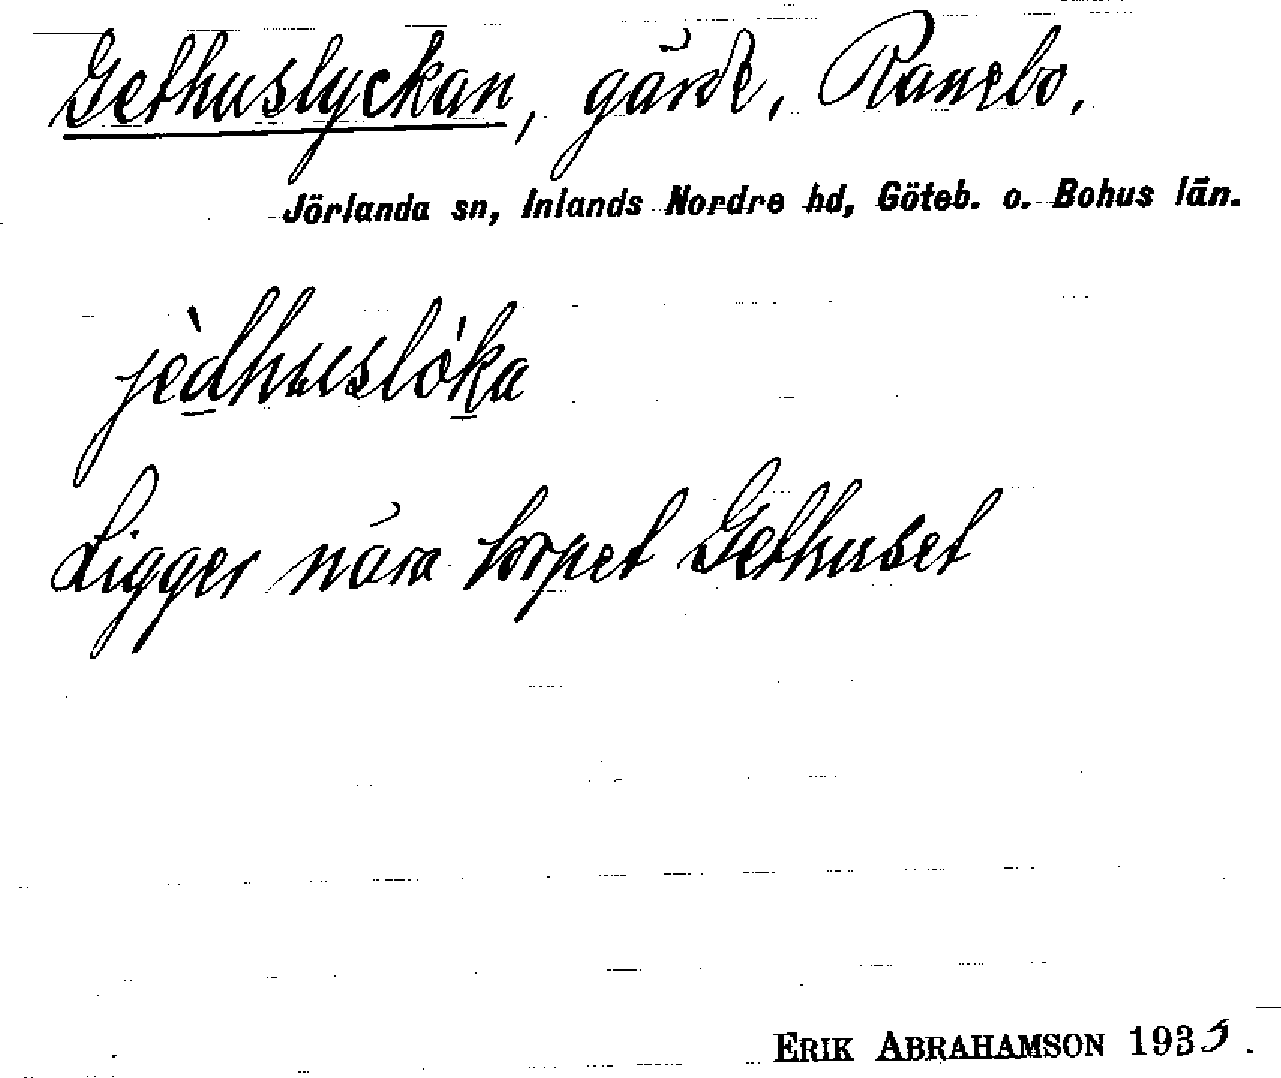 Gethuslyckan, gärde, Ranebo,
Jörlanda sn, Inlands Nordre hd, Göteb. o. Bohus län.
jèdhuslóka
Ligger nära torpet Gethuset
ERIK ABRAHAMSON 1933.